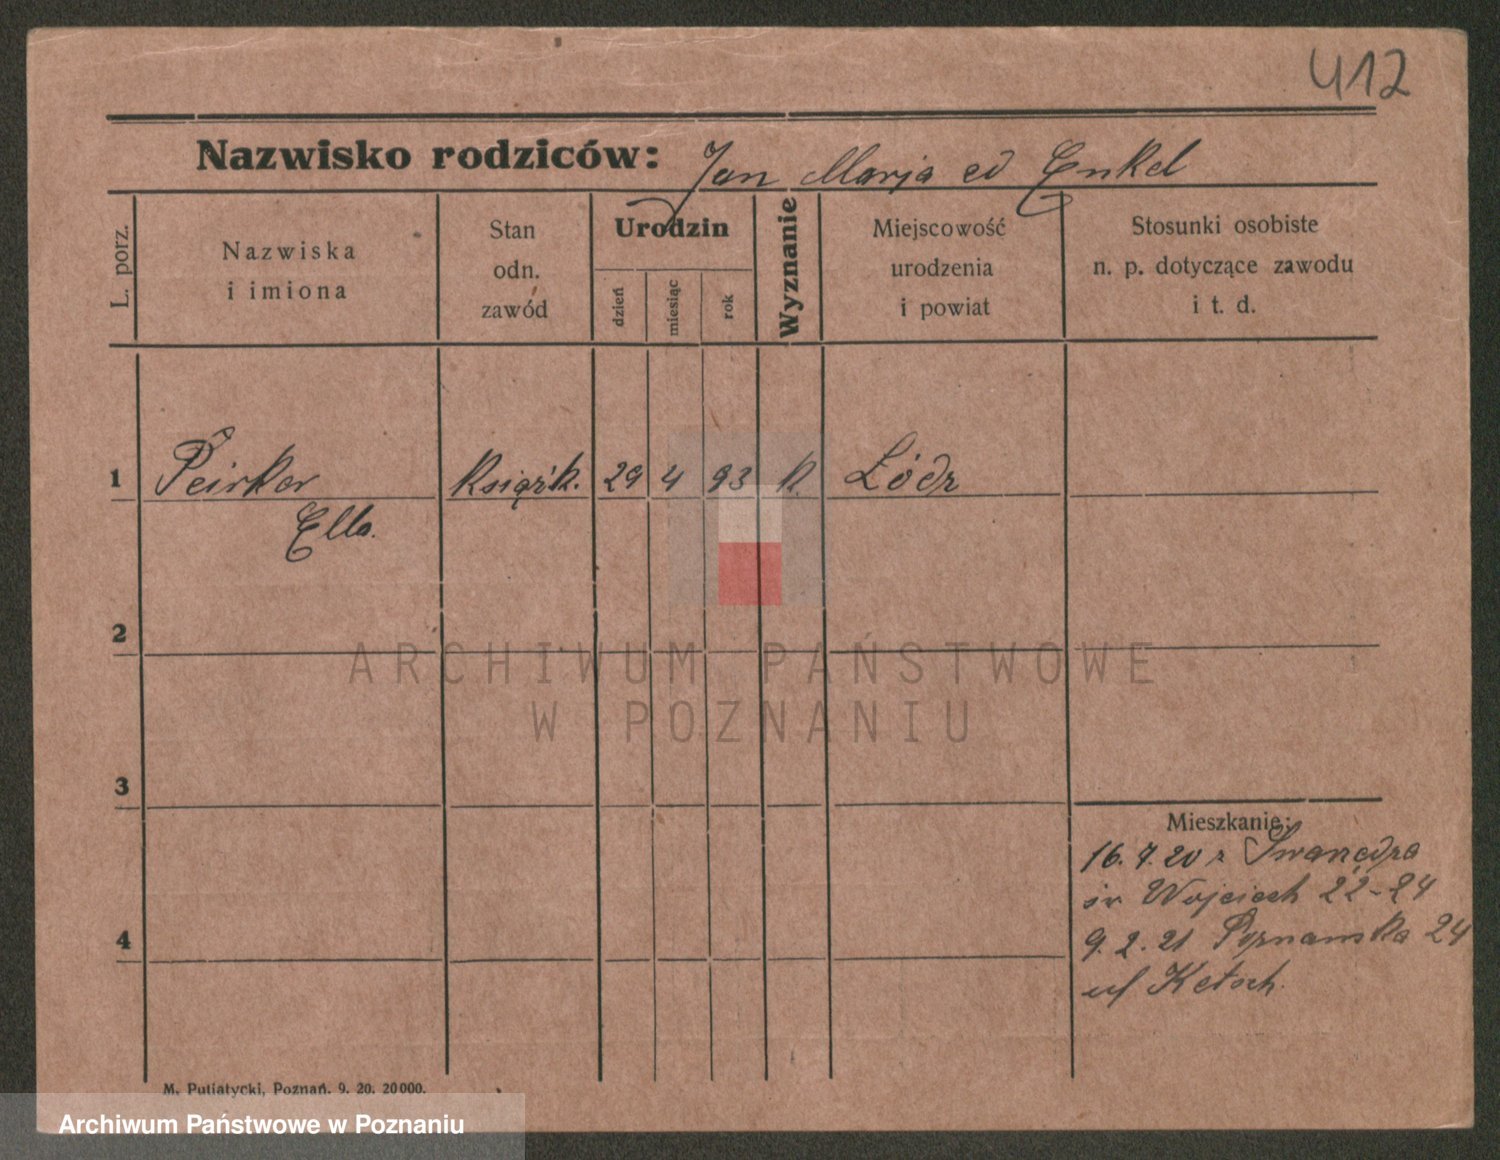 412
Nazwisko rodziców: Jan Marja ed Enkel
L. porz.
Nazwiska
i imiona
Stan
odn.
zawód
Urodzin
dzień
miesiąc
rok
Wyznanie
Miejscowość
urodzenia
i powiat
Stosunki osobiste
n. p. dotyczące zawodu
i t. d.
1 Peirker Książk. 29 4 93 k. Łódz
Ella.
2
ARCHIWUM PAŃSTWOWE
W POZNANIU
3
Mieszkanie:
16. 7. 20 z Swarzędza
św Wojciech 22-24
4
9. 2. 21 Poznanska 24
M. Putiatycki, Poznań. 9. 20. 20000.
Archiwum Państwowe w Poznaniu